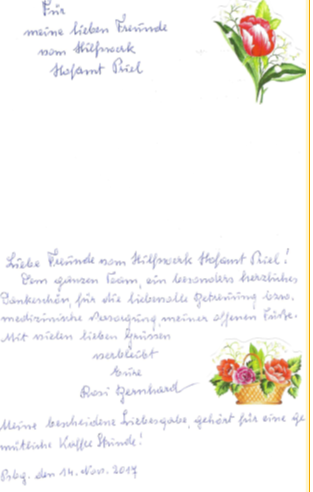 Für
meine lieben Freunde
vom Hilfswerk
Hofamt Priel
Liebe Freunde vom Hilfswerk Hofamt Priel!
Dem ganzen Team, ein besonders herzliches
Dankeschön, für die liebevolle Betreuung bzw.
medizinische Versorgung meiner offenen Füße.
Mit vielen lieben Grüssen
verbleibt
Eure
Rosi Bernhard
Meine bescheidene Liebesgabe, gehört für eine ge
mütliche Kaffee Stunde!
Pbg. den 14. Nov. 2017